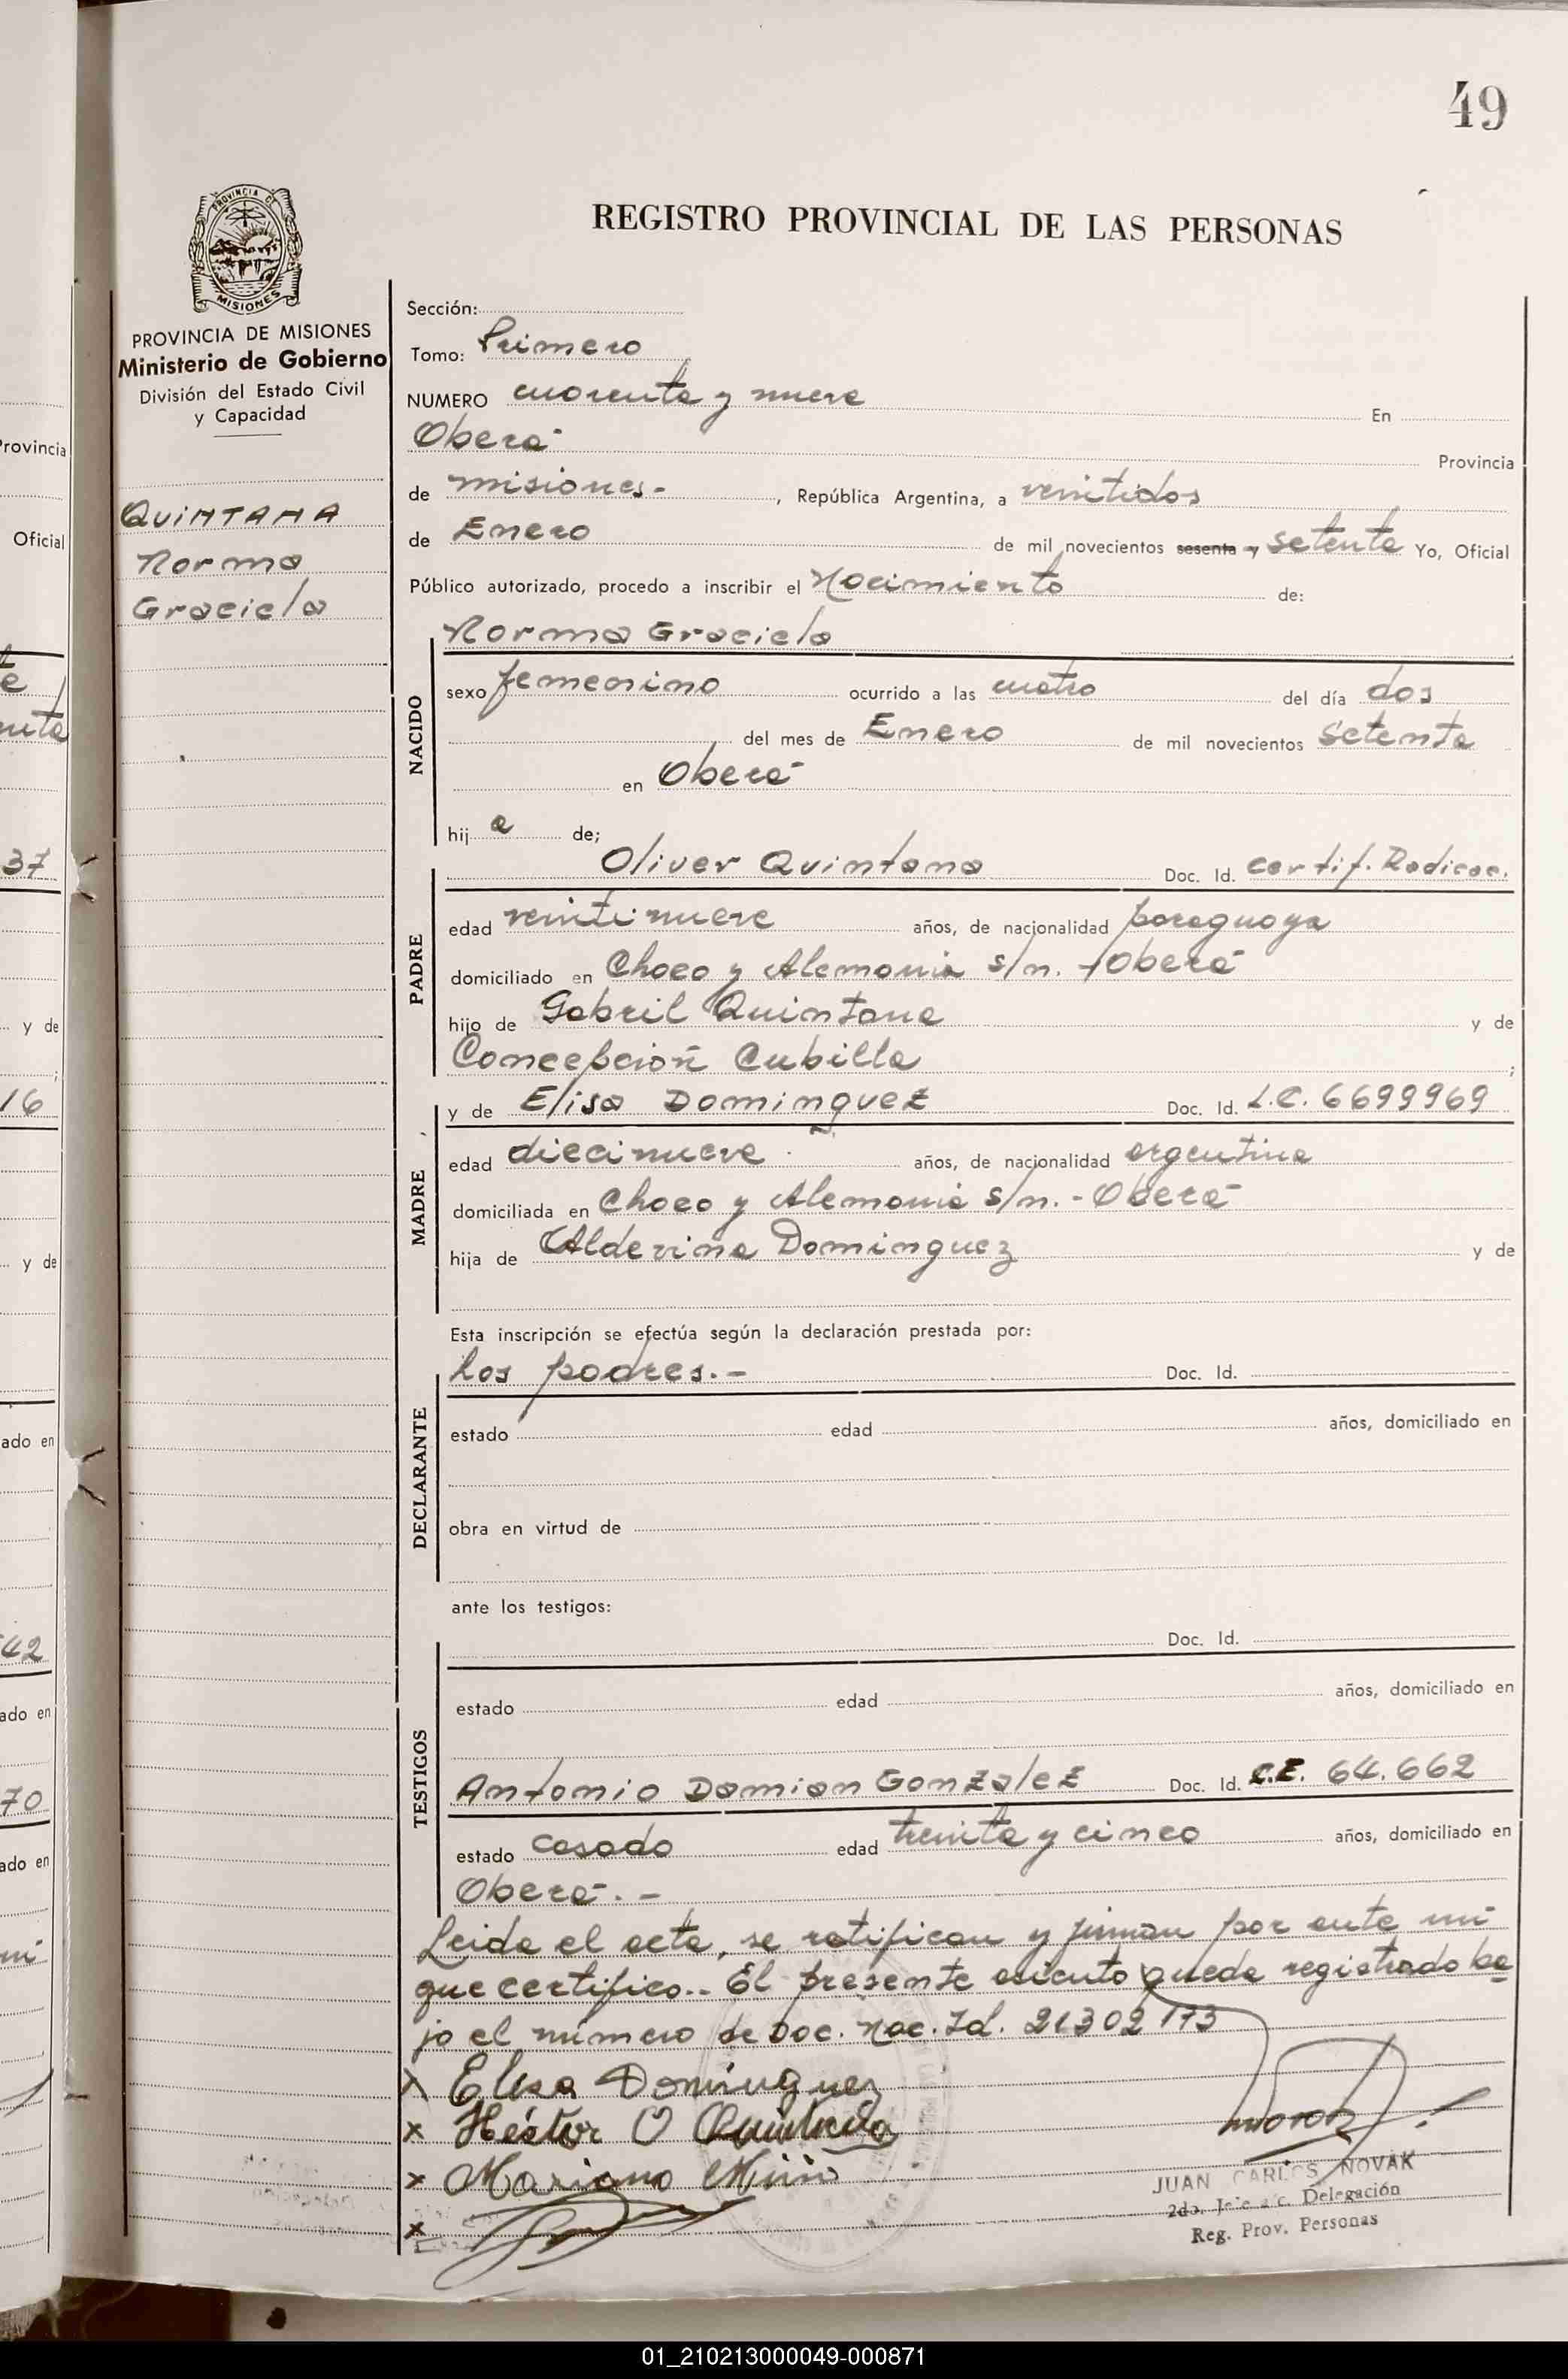 49
REGISTRO PROVINCIAL DE LAS PERSONAS
PROVINCIA DE MISIONES
PROVINCIA DE MISIONES
Ministerio de Gobierno
División del Estado Civil
y Capacidad
QUINTANA
Norma
Graciela
Sección:
Tomo: Primero
NUMERO cuarenta y nueve En
Oberá Provincia
de misiones.- , República Argentina, a veintidos
de Enero de mil novecientos sesenta y setenta Yo, Oficial
Público autorizado, procedo a inscribir el Nacimiento de:
Norma Graciela
NACIDO
sexo femenino ocurrido a las cuatro del día dos
del mes de Enero de mil novecientos setenta
en Oberá
hij a de;
Oliver Quintana Doc. Id. certif. Radicac.
PADRE
edad veintinueve años, de nacionalidad paraguaya
domiciliado en Chaco y Alemania s/n. - Oberá
hijo de Gabril Quintana y de
Concepción Cubilla ;
y de Elisa Dominguez Doc. Id. L.C. 6699969
MADRE
edad diecinueve años, de nacionalidad argentina
domiciliada en Chaco y Alemania s/n. - Oberá
hija de Alderina Dominguez y de
Esta inscripción se efectúa según la declaración prestada por:
los padres.- Doc. Id.
DECLARANTE
estado edad años, domiciliado en
obra en virtud de
ante los testigos:
Doc. Id.
TESTIGOS
estado edad años, domiciliado en
Antonio Damian Gonzalez Doc. Id. C.E. 64.662
estado casado edad treinta y cinco años, domiciliado en
Oberá.-
Leida el acta, se ratifican y firman por ante mi
que certifico.. El presente asiento queda registrado ba
jo el número de Doc. Nac. Id. 21302173
x Elisa Dominguez
x Héctor O Quintana
x Mariano
x
JUAN CARLOS NOVAK
2do. Jefe a/c. Delegación
Reg. Prov. Personas
Provincia
Oficial
37
y de
16
y de
ado en
42
ado en
70
ado en
01_210213000049-000871